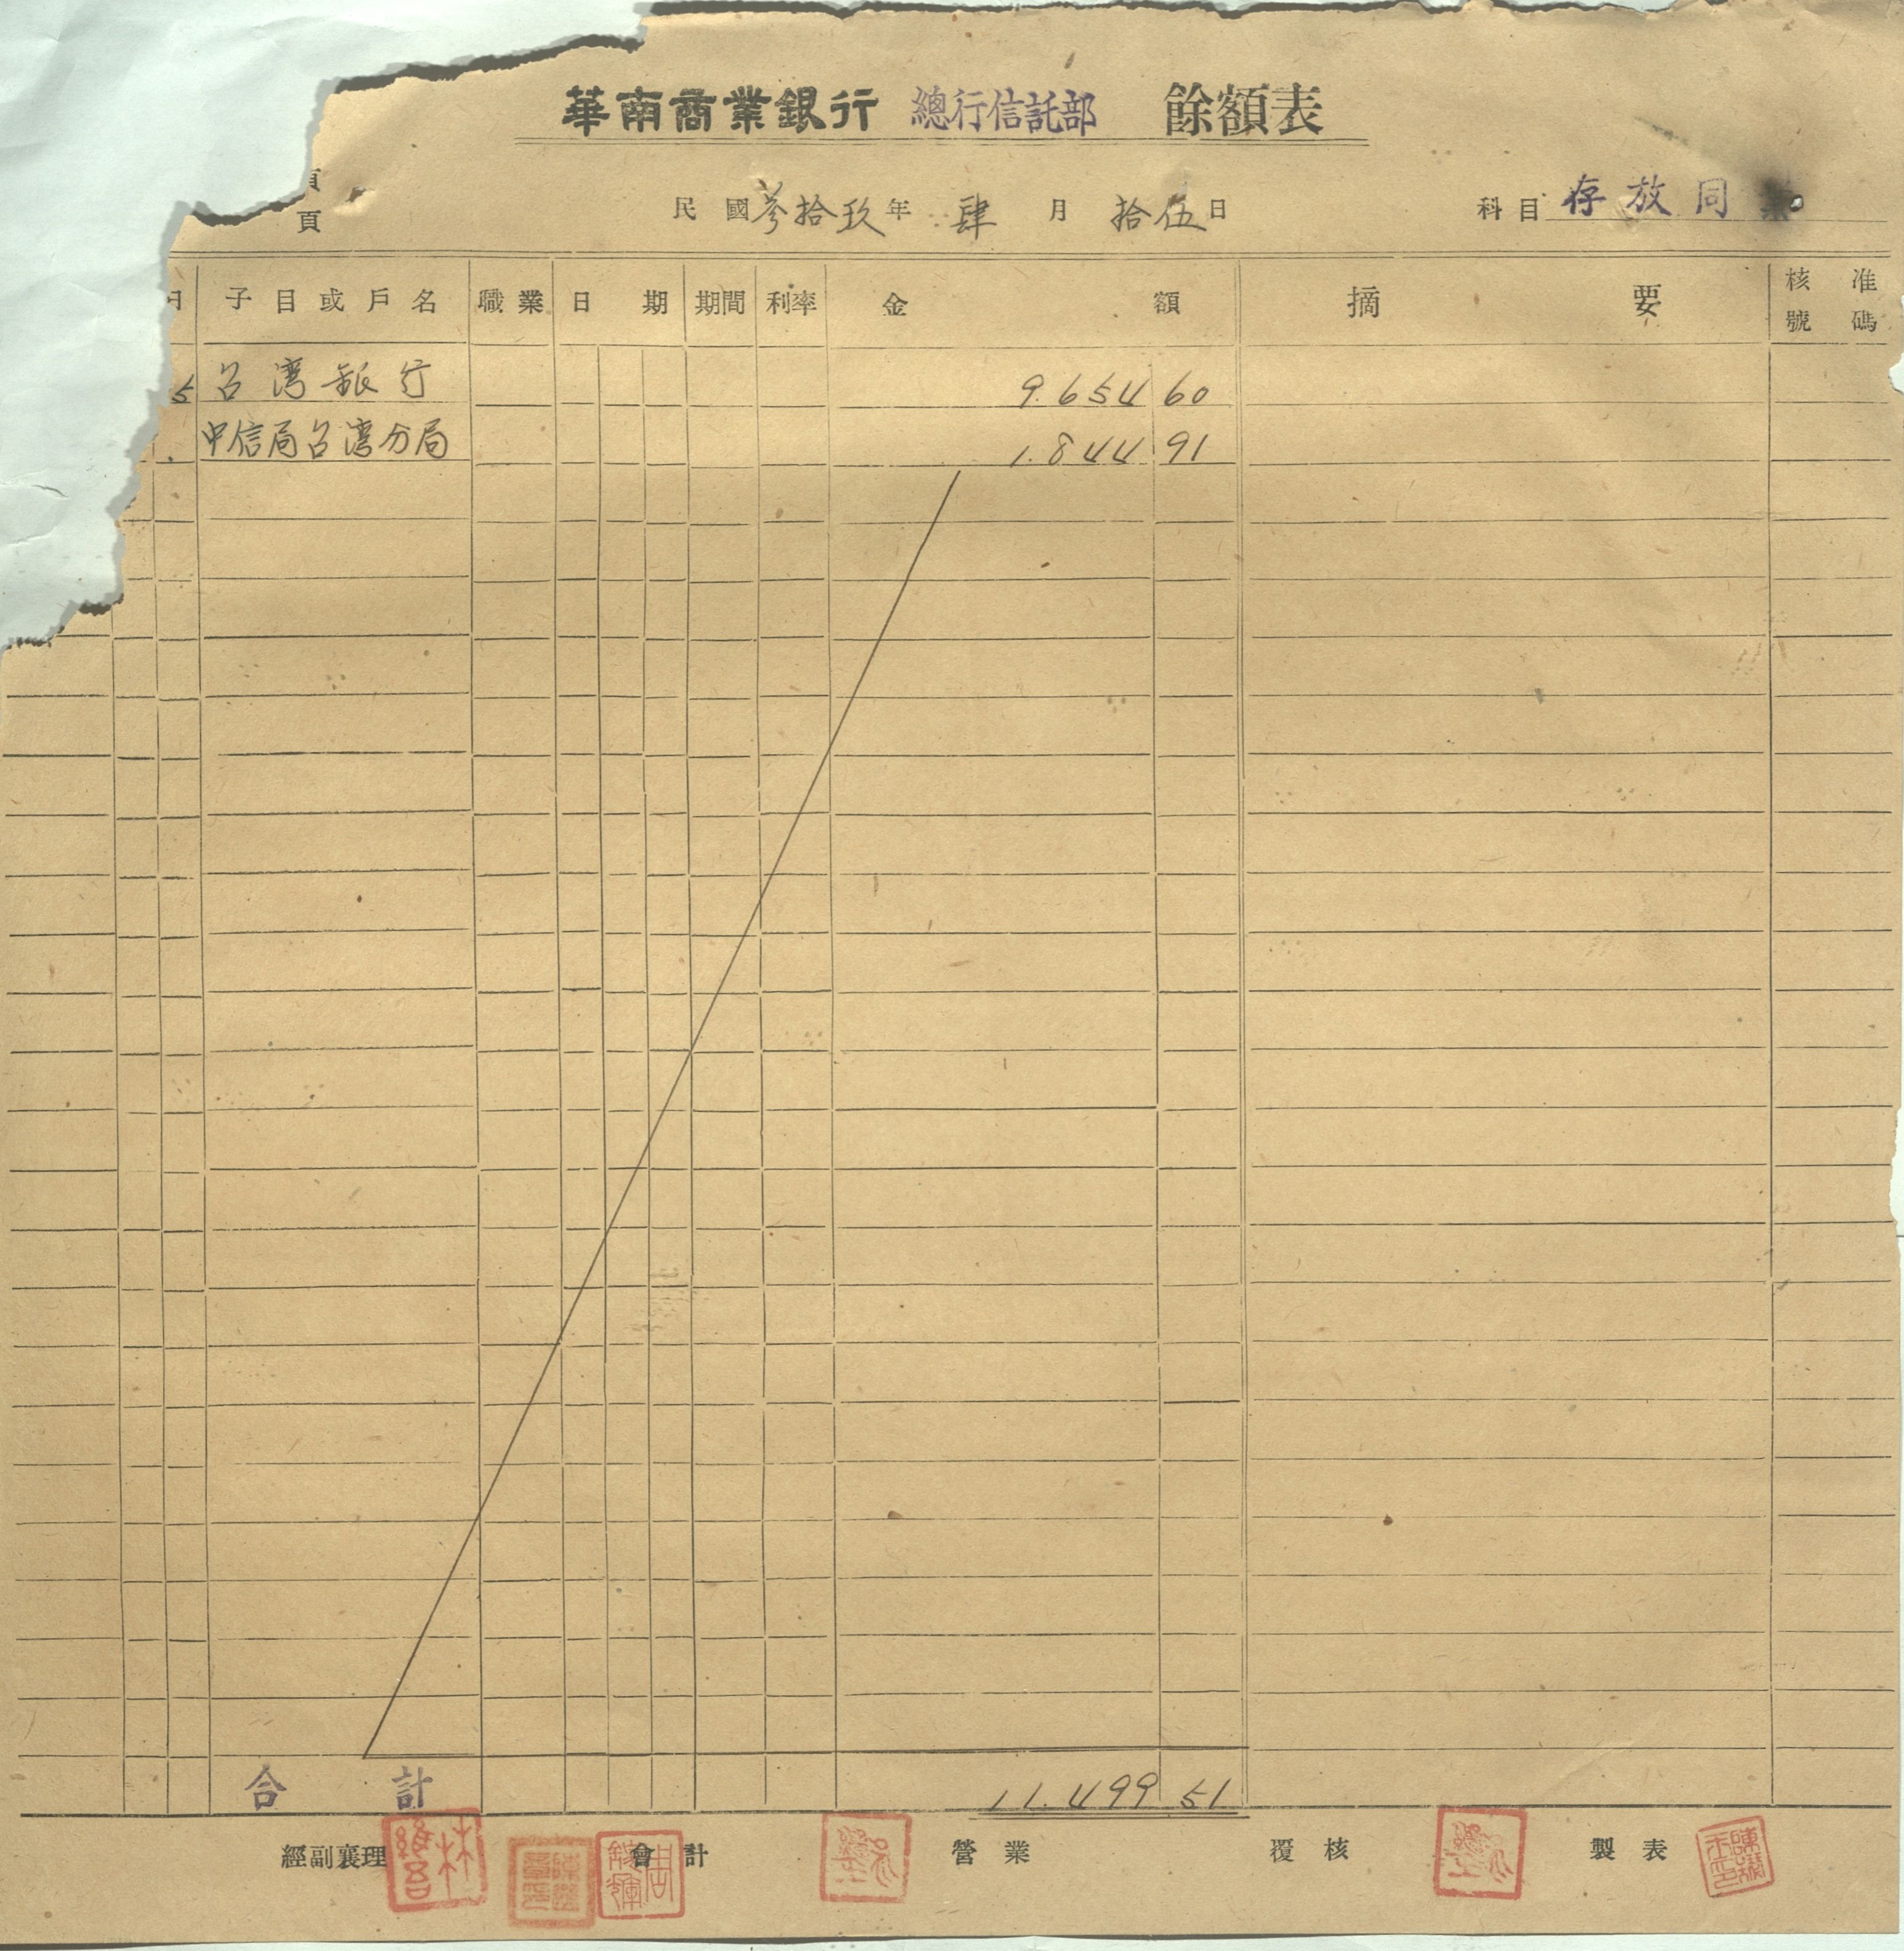 華南商業銀行 總行信託部 餘額表
頁
頁
民國參拾玖年肆月拾伍日
科目 存放同業
日 子目或戶名 職業 日期 期間 利率 金額 摘要 核准號碼
5 台湾銀行 9.654 60
中信局台湾分局 1.844 91
合計 11.499 51
經副襄理 會計 營業 覆核 製表
林維吾